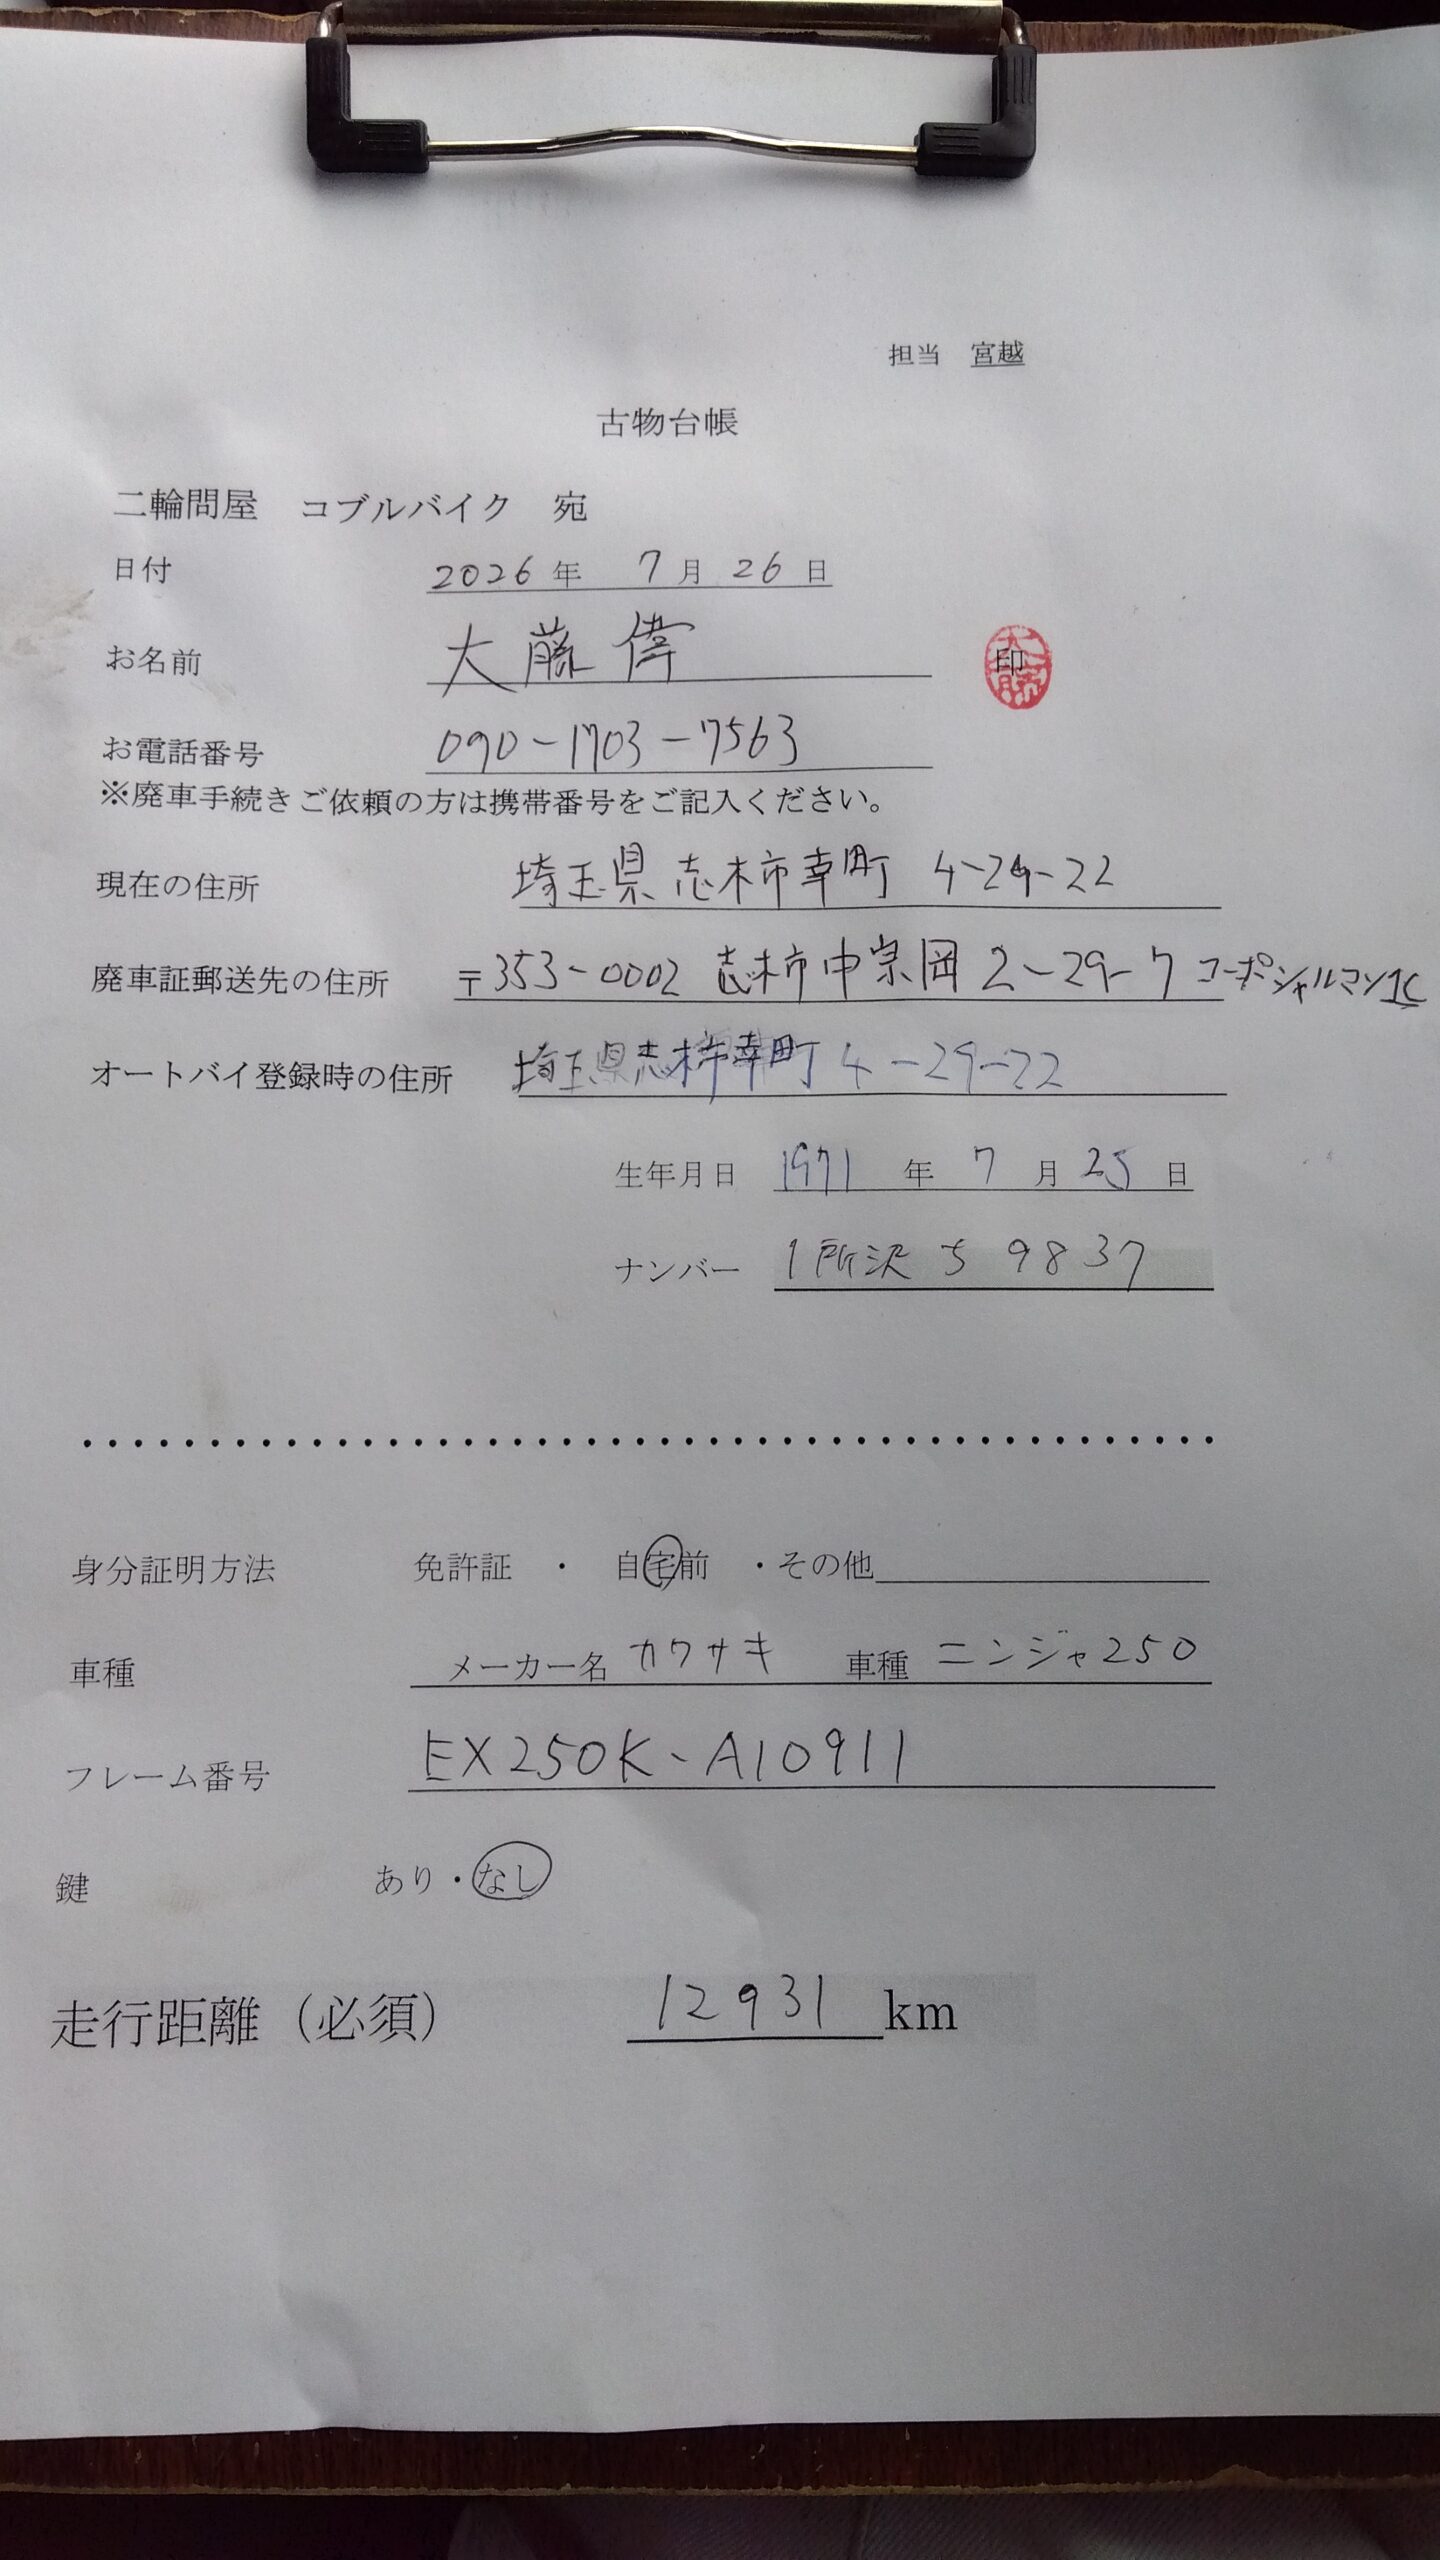 担当 宮越
古物台帳
二輪問屋 コブルバイク 宛
日付 2026年 7月26日
お名前 大藤偉 印
お電話番号 090-1703-7563
※廃車手続きご依頼の方は携帯番号をご記入ください。
現在の住所 埼玉県志木市幸町 4-29-22
廃車証郵送先の住所 〒353-0002 志木市中宗岡2-29-7 コーポシャルマン1C
オートバイ登録時の住所 埼玉県志木市幸町4-29-22
生年月日 1971年 7月25日
ナンバー 1所沢ち9837
身分証明方法 免許証 ・ 自宅前 ・その他
車種 メーカー名 カワサキ 車種 ニンジャ250
フレーム番号 EX250K-A10911
鍵 あり・なし
走行距離（必須） 12931km